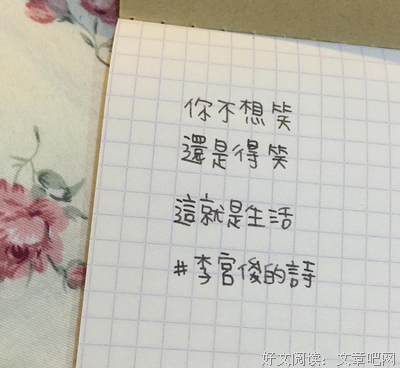 你不想笑
還是得笑
這就是生活
#李宮俊的詩
好文阅读：文章吧网